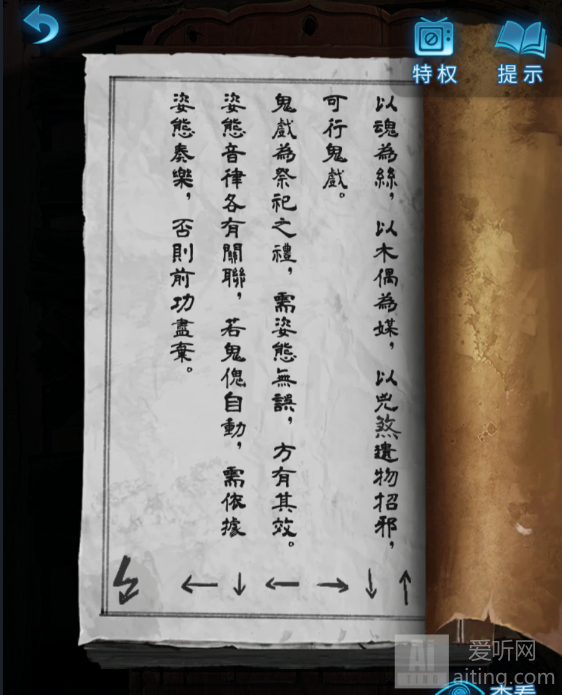 特权
提示
以魂為絲，以木偶為媒，以兇煞遺物招邪，
可行鬼戲。
鬼戲為祭祀之禮，需姿態無誤，方有其效。
姿態音律各有關聯，若鬼傀自動，需依據
姿態奏樂，否則前功盡棄。
← ↓ ← → ↓ ↑
AI
TING
爱听网
aiting.com
查看